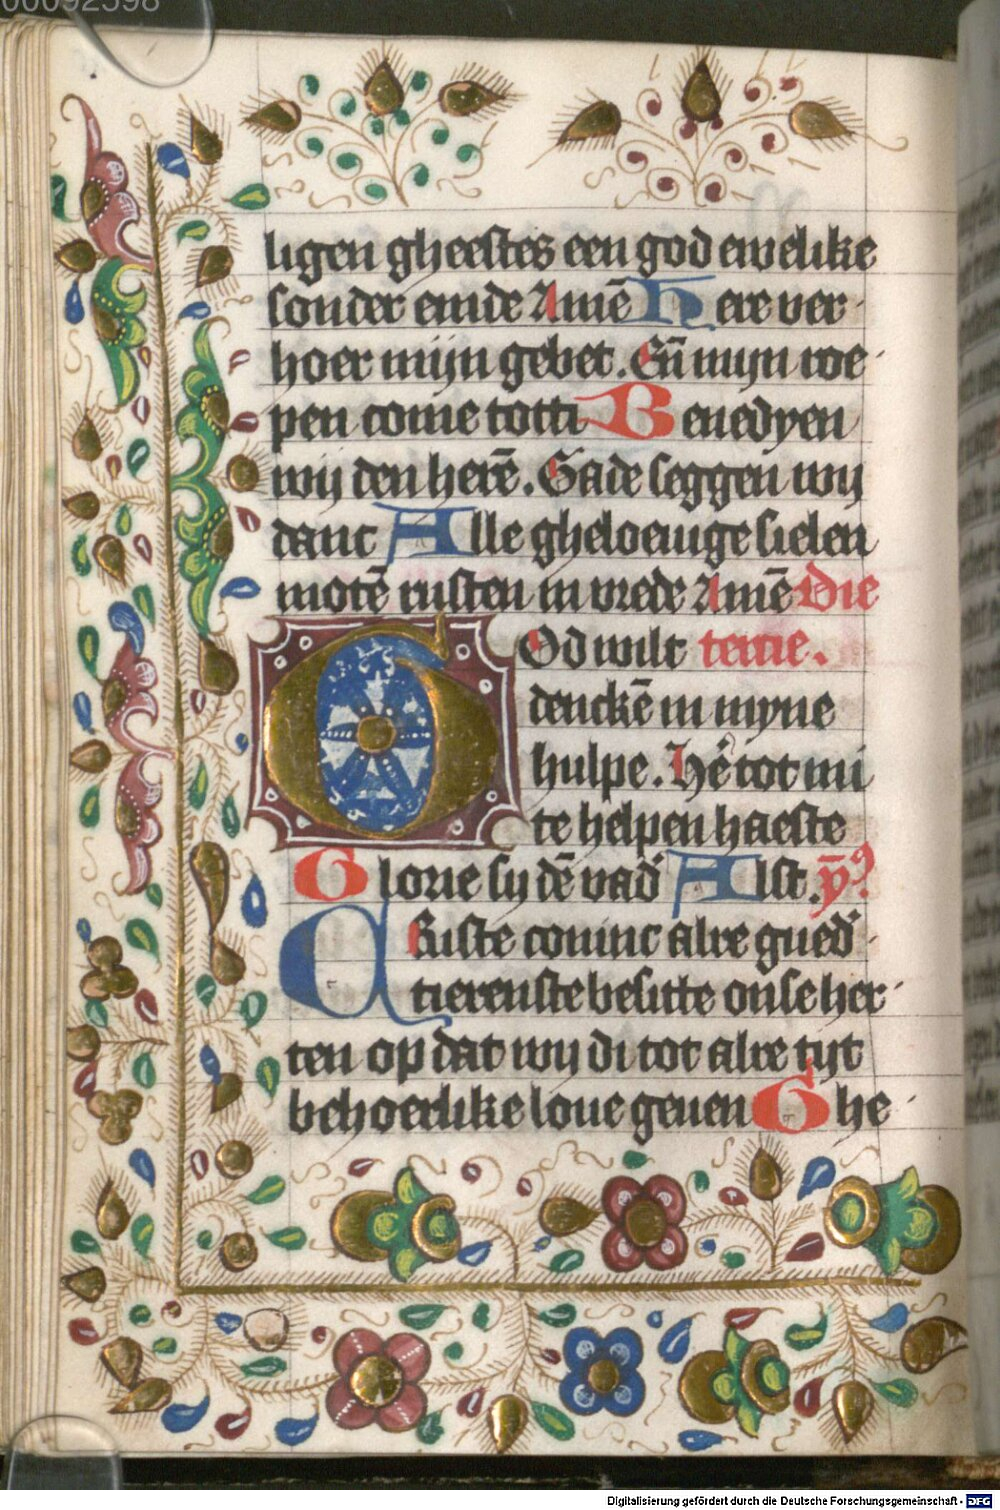 00092598
ligen gheestes een god ewelike
sonder einde Amē Here ver
hoer mijn gebet. Eñ mijn roe
pen come totti Benedyen
wij den herē. Gade seggen wij
danc Alle gheloeuige sielen
motē rusten in vrede Amē Die
God wilt tercie.
denckē in myne
hulpe. Hē tot mi
te helpen haeste
Glorie sy dē vad' Alst. ȳ9
Criste coninc alre gued'
tierenste besitte onse her
ten op dat wij di tot alre tijt
behoerlike loue geuen Ghe
Digitalisierung gefördert durch die Deutsche Forschungsgemeinschaft - DFG